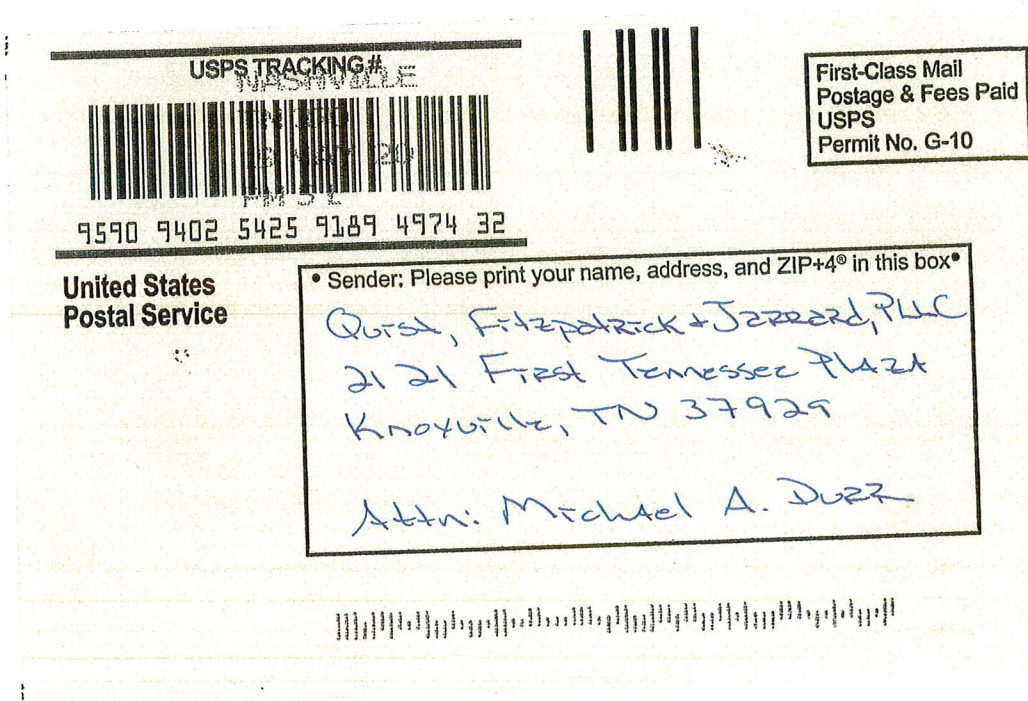 USPS TRACKING #
NASHVILLE
TN 370
PM 5 L
9590 9402 5425 9189 4974 32
First-Class Mail
Postage & Fees Paid
USPS
Permit No. G-10
United States
Postal Service
• Sender: Please print your name, address, and ZIP+4® in this box•
Quist, Fitzpatrick & Jarrard, PLLC
2121 First Tennessee Plaza
Knoxville, TN 37929
Attn: Michael A. Durr